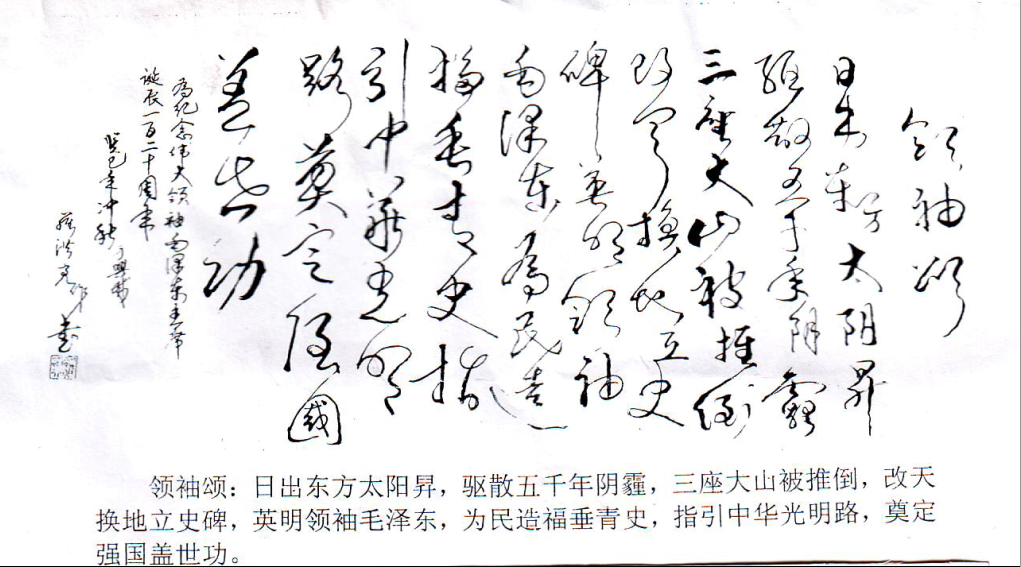 領袖頌
日出东方太阳昇
驱散五千年阴霾
三座大山被推倒
改天换地立史
碑英明領袖
毛泽东為民造
福垂青史指
引中華光明
路奠定强國
蓋世功
為纪念伟大领袖毛泽东主席
诞辰一百二十周年
癸巳年冲秋
领袖颂：日出东方太阳昇，驱散五千年阴霾，三座大山被推倒，改天
换地立史碑，英明领袖毛泽东，为民造福垂青史，指引中华光明路，奠定
强国盖世功。